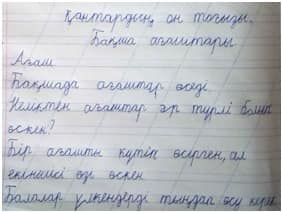 Қантардың он тоғызы.
Бақша ағаштары
Ағаш
Бақшада ағаштар өседі.
Неліктен ағаштар әр түрлі болып
өскен?
Бір ағашты күтіп өсірген, ал
екіншісі өзі өскен
Балалар үлкендерді тыңдап өсу керек